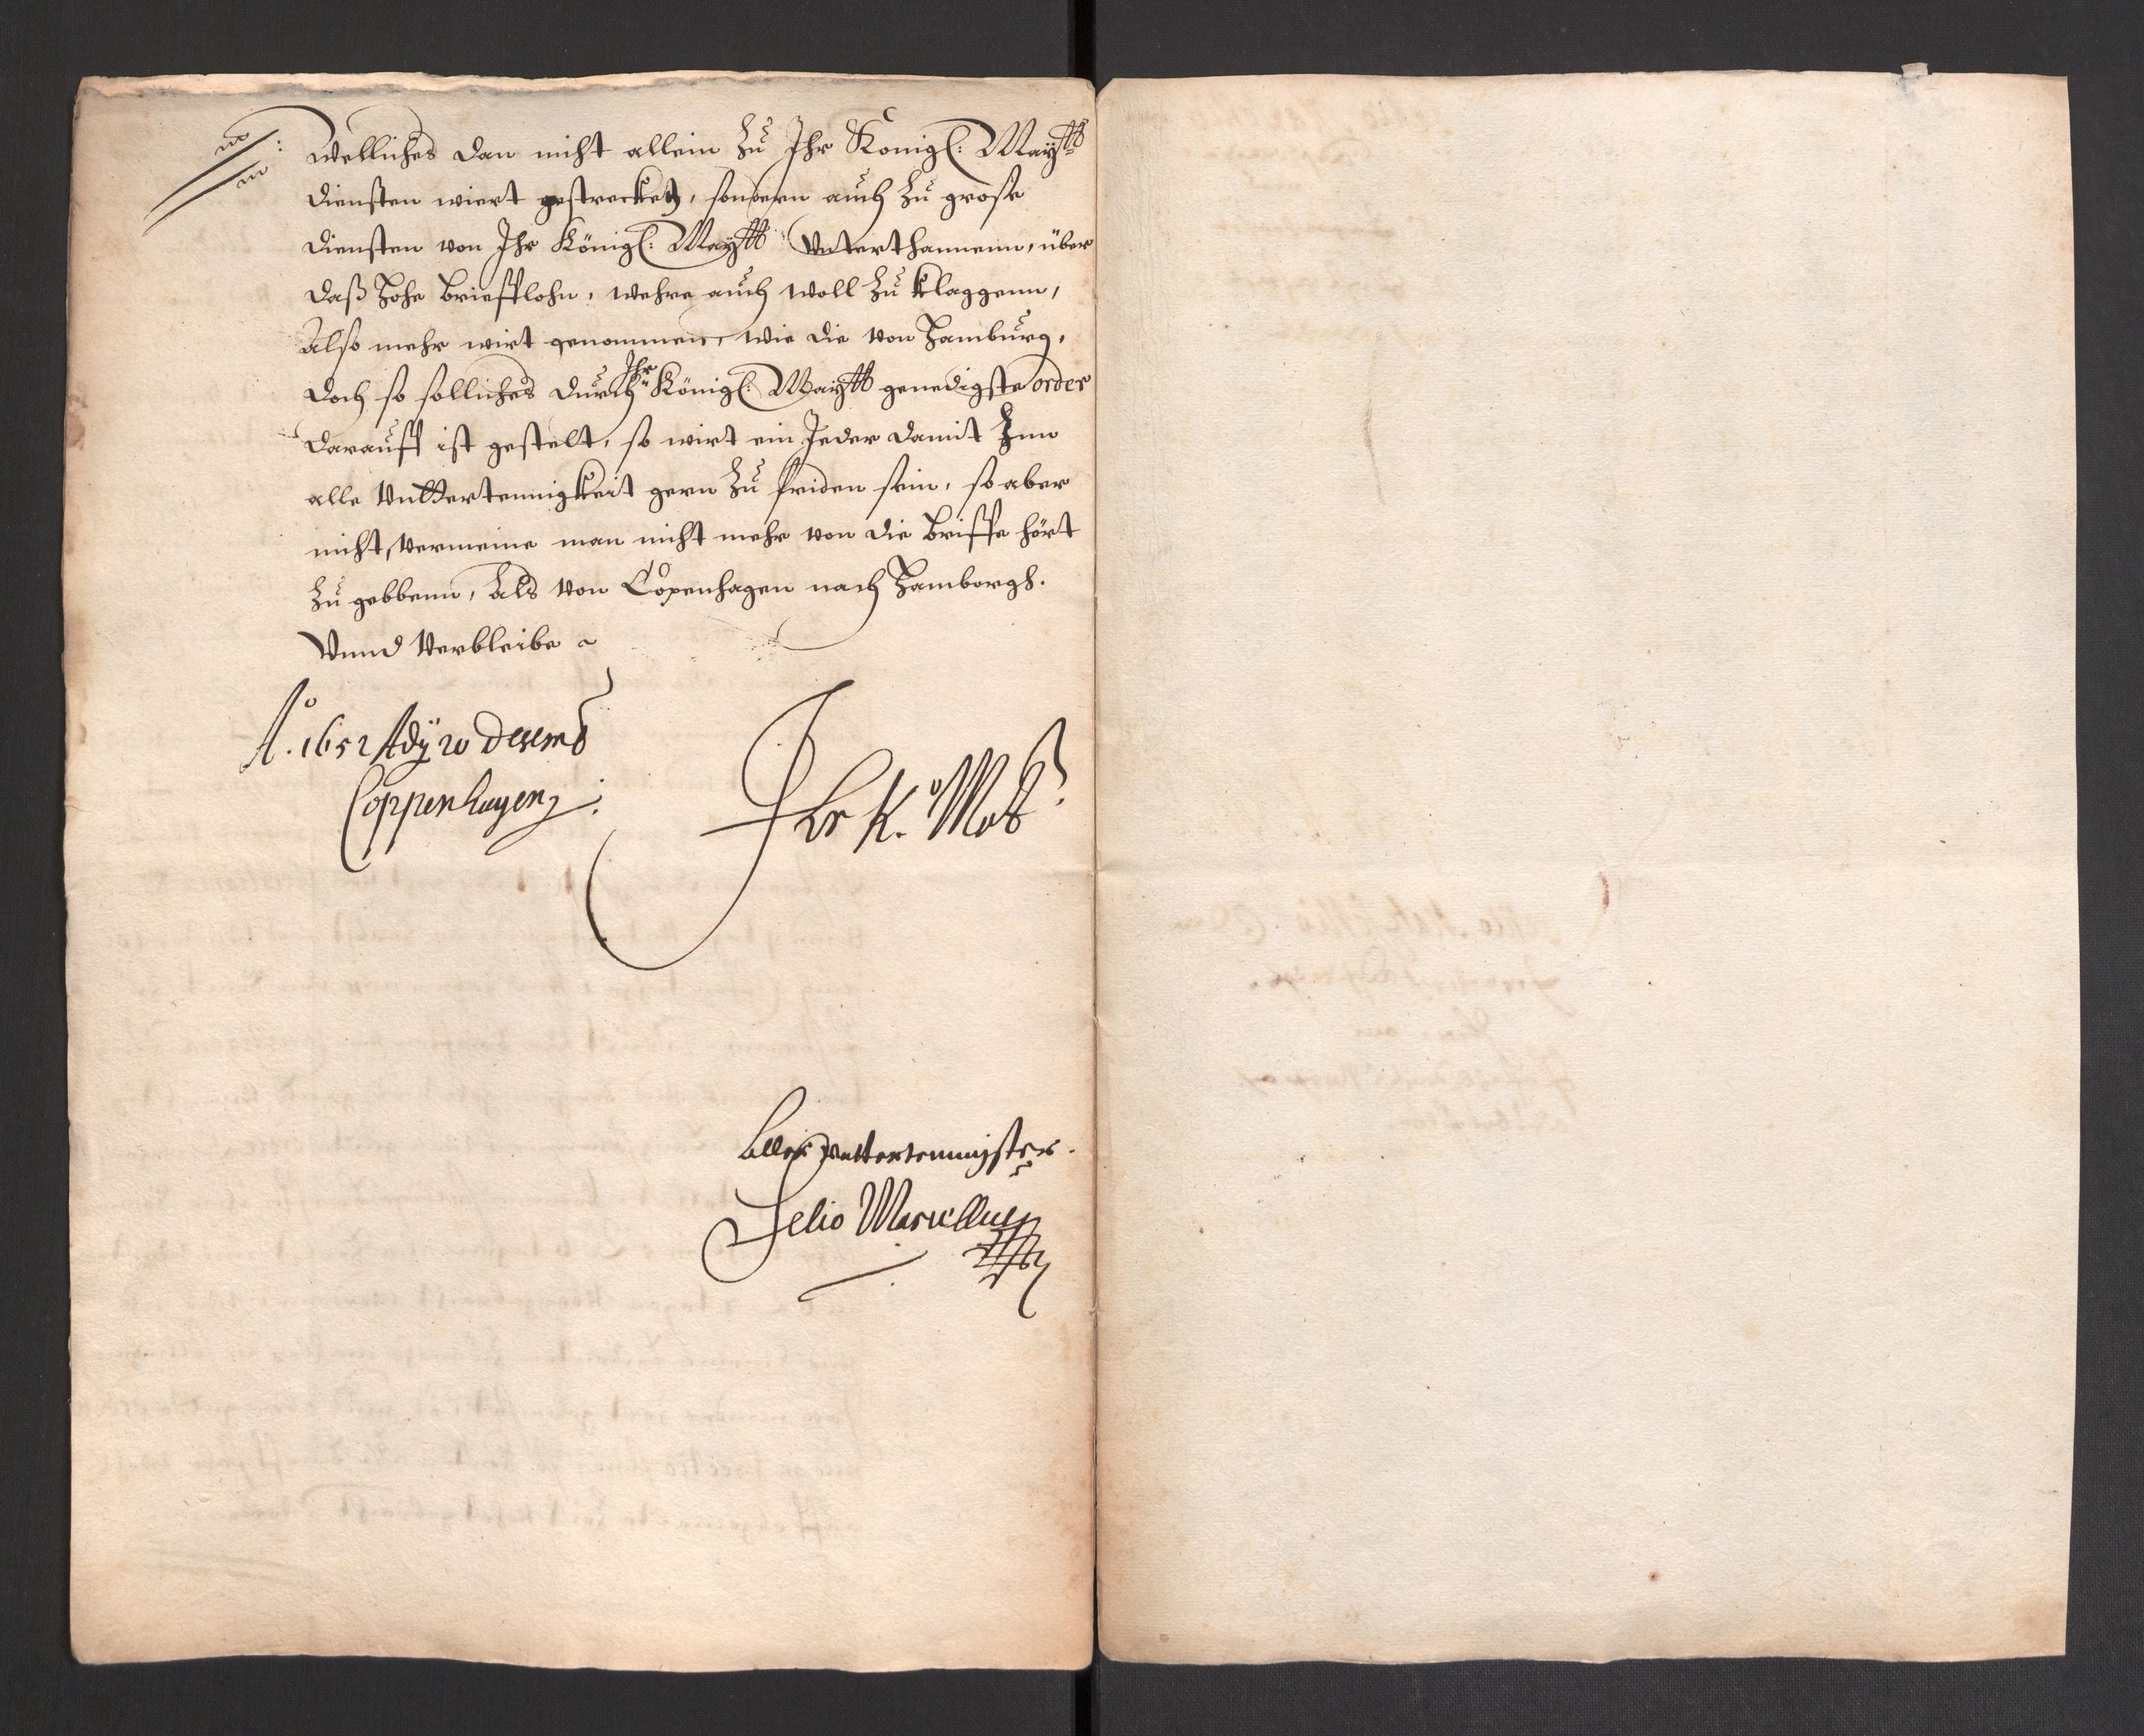 Welliches dan nicht allein Zu Ihr Königl: Maytt
diensten wiert gestrecket, sondern auch Zu grose
diensten von Ihr Königl: Maytt Unterthannenn, über
daß hohe brieffslohn, wehre auch woll Zu klaggenn,
Also mehr wirt genommen, wie die von Hamburg,
Doch so solliches durch Ihr Königl: Maytt genedigste order
darauff ist gestelt, so wirt ein Jeder damit Inn
alle Untterteinigkeit gern Zu friden sein, so aber
nicht, vermeine man nicht mehr von die briffe hört
Zu gebbenn, als von Copenhagen nach Hamborgh.
Unnd Verbleibe
Ao. 1652 Adÿ 20 Desemb
Coppenhagen
Ihr K. Mat
Aller Untterteinigster
Selio Marcellius